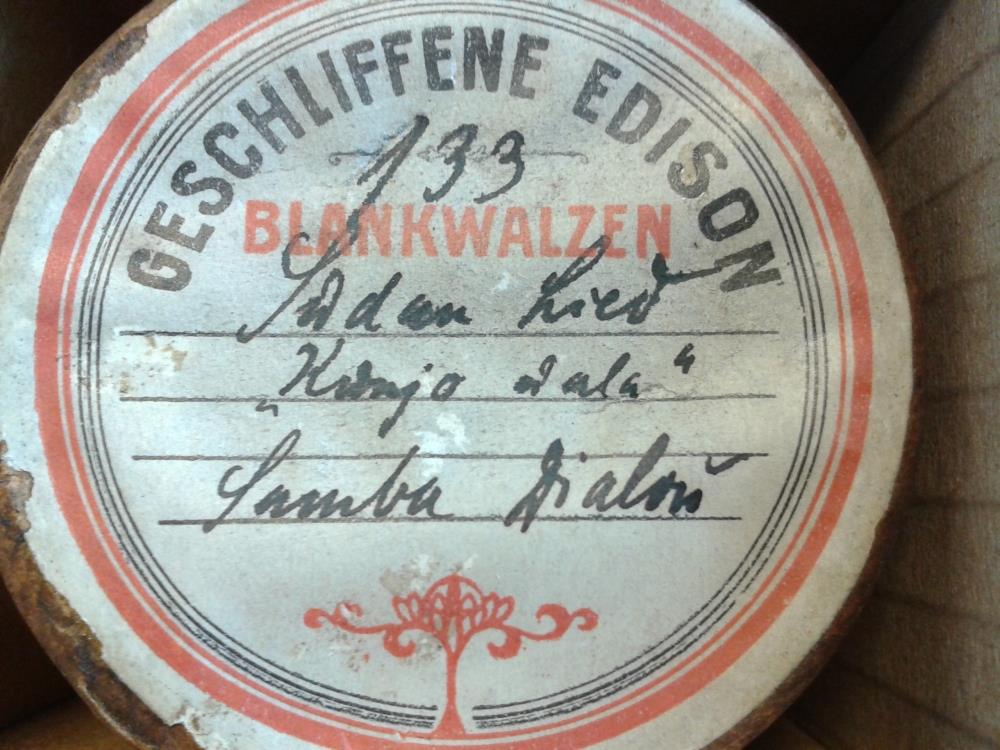 GESCHLIFFENE EDISON
133
BLANKWALZEN
Sudan Lied
"Kunjo wala"
Samba Dialou